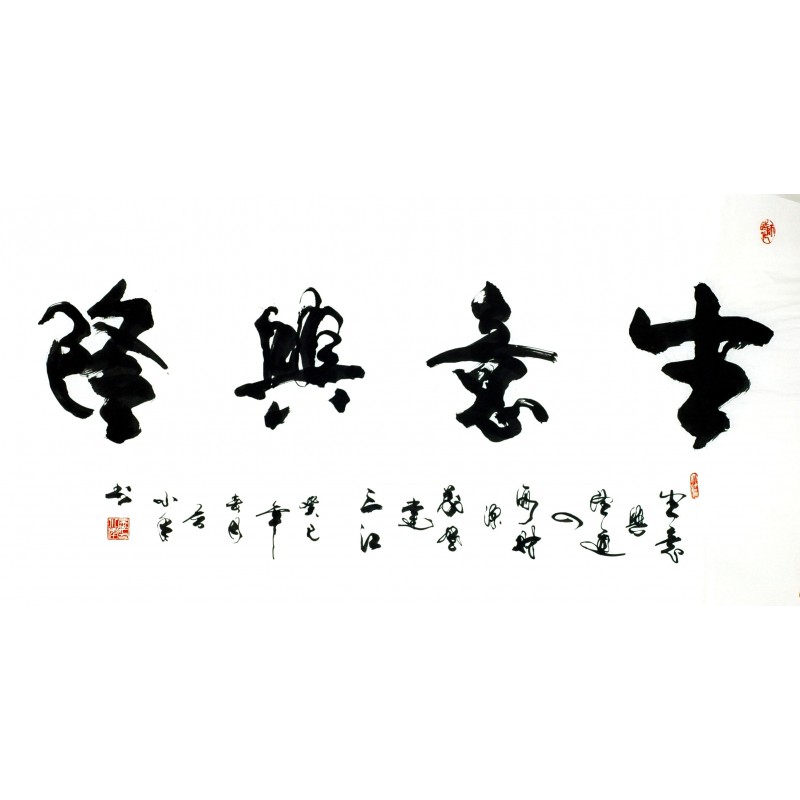 生意興隆
生意
興
隆通
四
海財
源
茂盛
達
三江
癸巳
年
春月
書